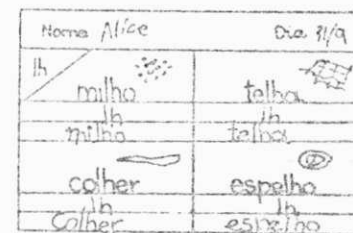 Nome Alice Dia 31/9
lh
milho telha
lh lh
milho telha
colher espelho
lh lh
Colher espelho